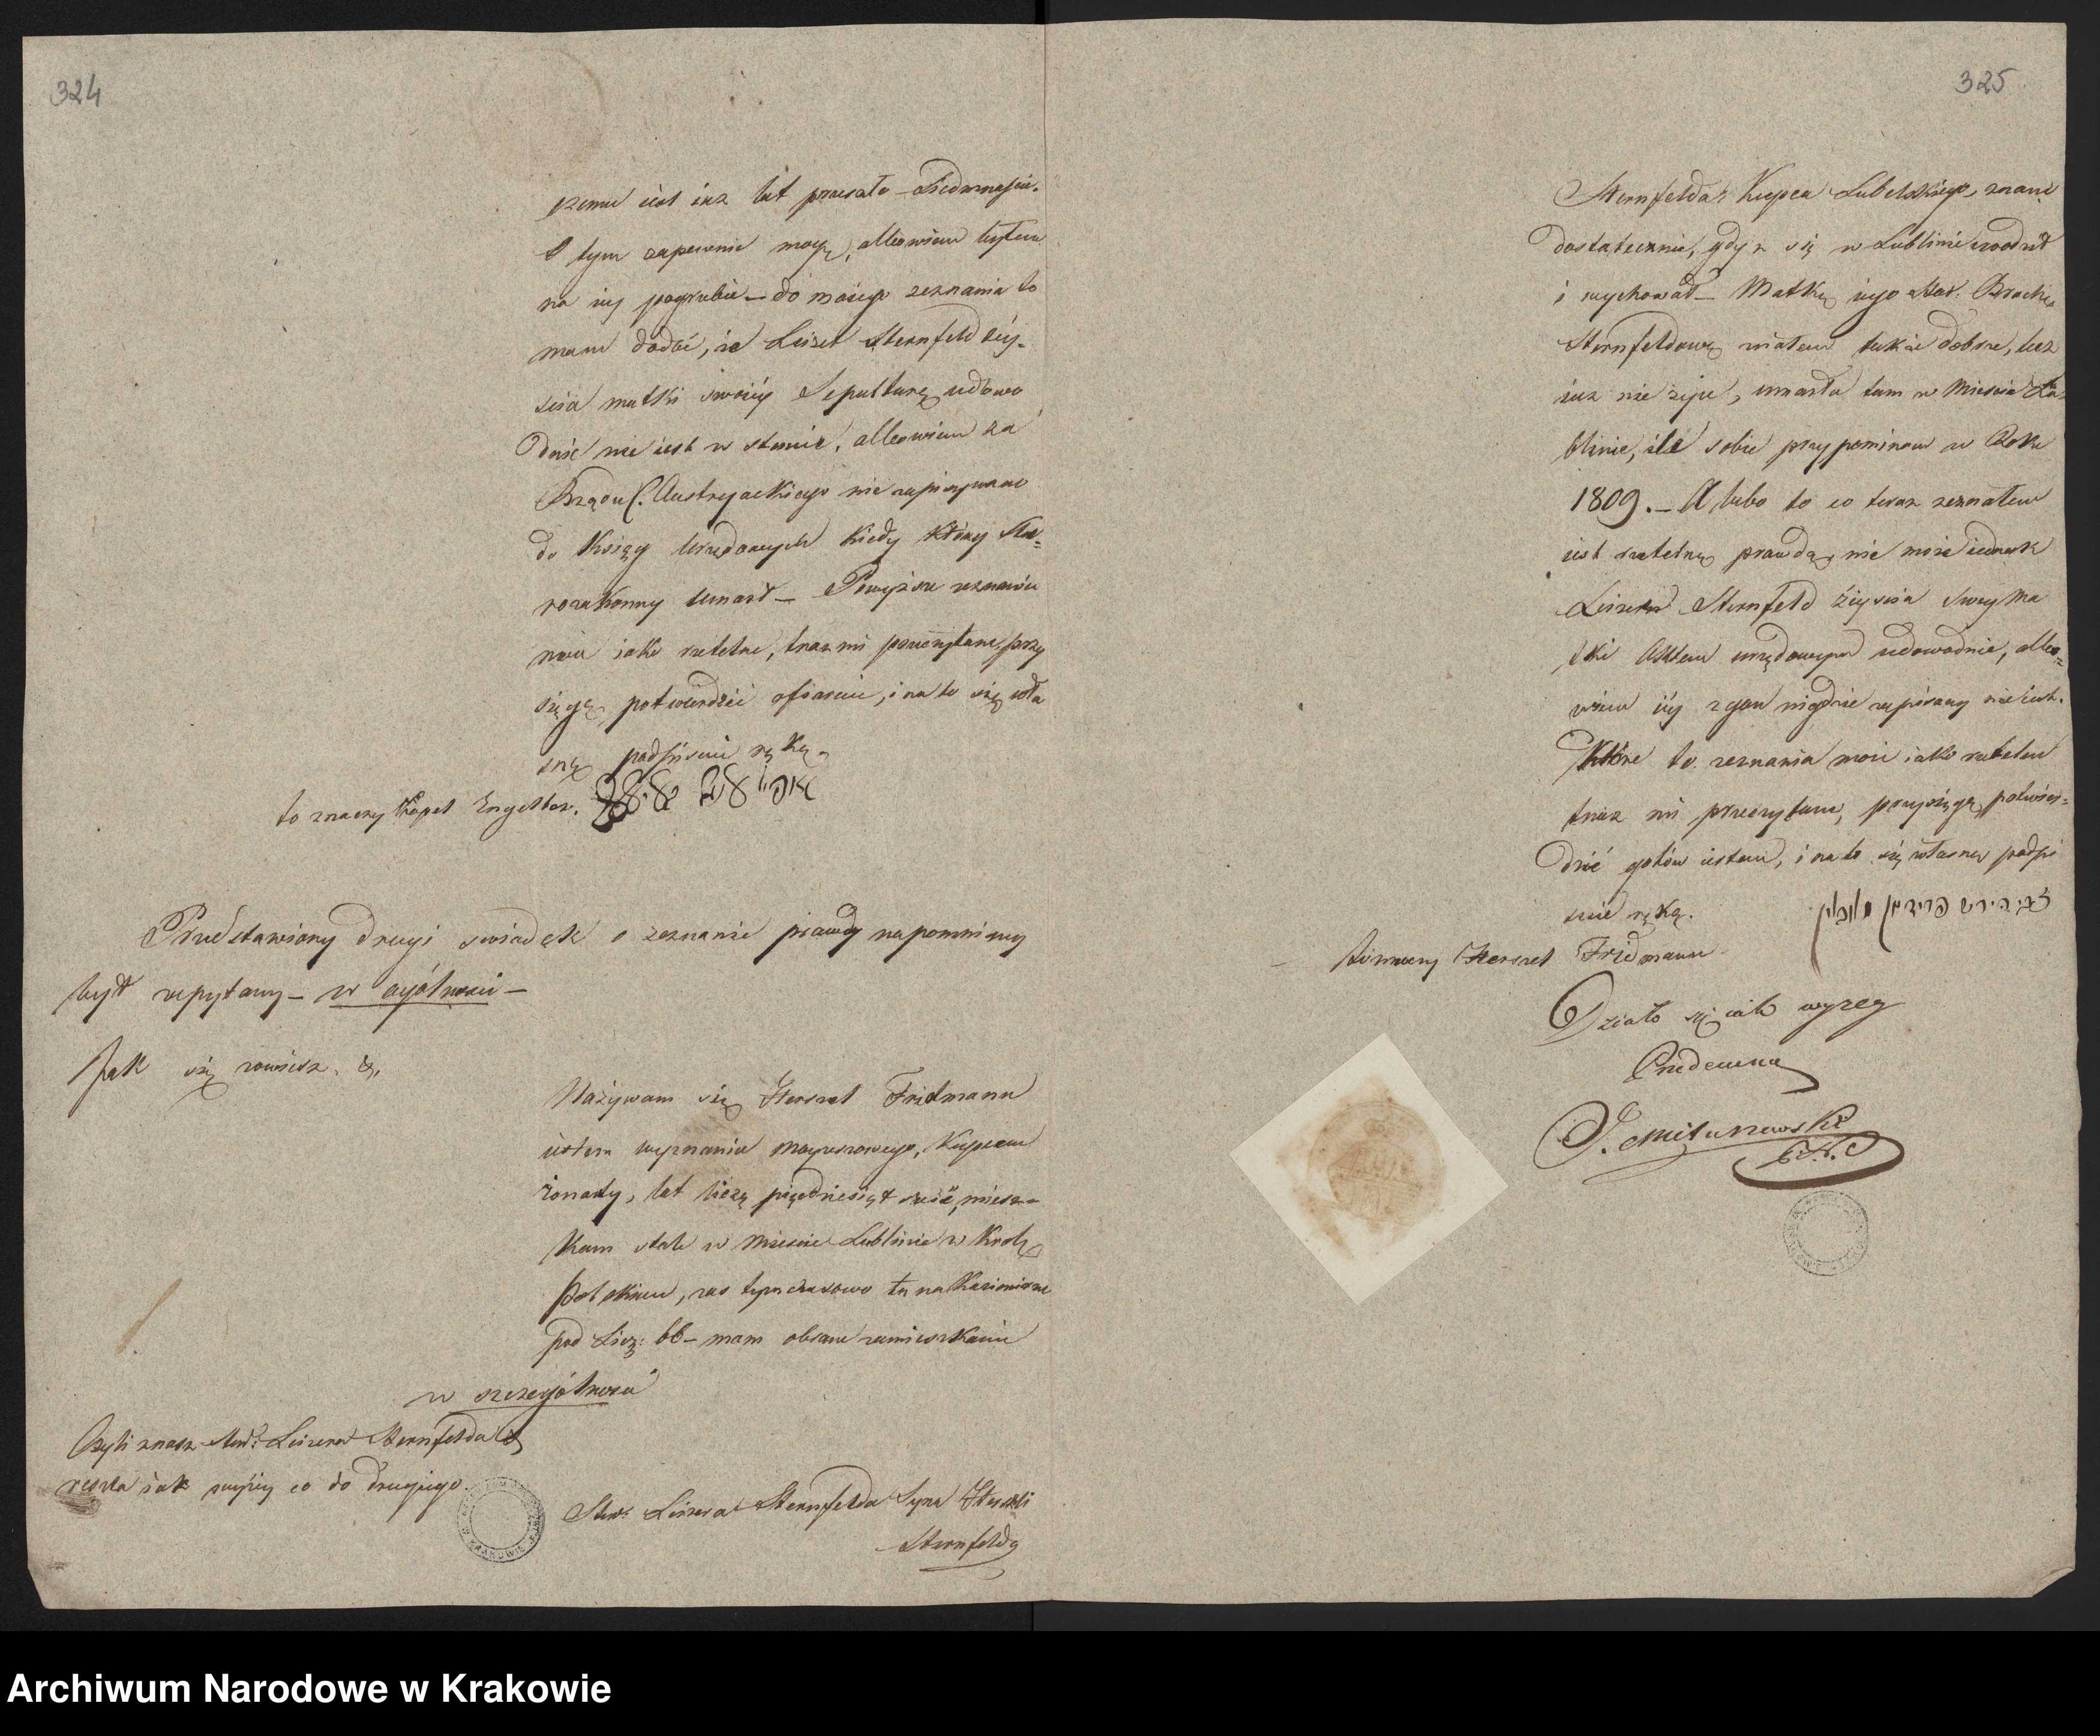 324
czemu iest iuz lat przeszło Siedmnaście.
O tym zapewnić mogę, albowiem byłem
na iey pogrzebie – do moiego zeznania to
mam dodać, że Leizer Sternfeld żey-
ścia matki swoiéy Sepulturą udowo
dnić nie iest w stanie, albowiem za
Rządu C. Austryackiego nie zapisywano
do Księgi Urzędowych kiedy który Sta-
rozakonny Umarł – Powyższe zeznanie
moie iako rzetelne, teraz mi przeczytane, przy
sięgą potwierdzić ofiaruie, i na to się wła
sną podpisuie ręką.
to znaczy Kopel Engelber.
Przedstawiony drugi swiadek o zeznanie prawdy napomniony
był zapytany – w ogólności –
Jak się zowiesz &.
Nazywam się Herszel Fridmann
iestem wyznania moyzeszowego, Kupcem
żonaty, lat liczę pięćdziesiąt sześć, miesz-
kam stale w Mieście Lublinie w Król.
Polskiem, zas tymczasowo tu na Kazimierzu
pod Licz: 66 – mam obrane zamieszkanie
w szczególności
Czyli znasz Star: Leizera Sternfelda &
reszta iak wyżey co do drugiego.
Star: Leizera Sternfelda Syna Herszli
Sternfelda
325
Sternfelda, Kupca Lubelskiego, znam
dostatecznie, gdyż się w Lublinie urodził
i wychował – Matkę iego Star. Brachę
Sternfeldową znałem także dobrze, lecz
iuz nie żyie, umarła tam w Mieście Lu-
blinie, ile sobie przypominam w Roku
1809. – A lubo to co teraz zeznałem
iest rzetelną prawdą, nie może iednak
Leizer Sternfeld Zeyscia Swey Ma
tki Aktem urzędowym udowodnić, albo-
wiem iéy zgon nigdzie zapisany nie iest.
Które to zeznania moie iako rzetelne
teraz mi przeczytane, przysięgą potwier-
dzić gotów iestem, i na to się własną podpi
suie ręką.
to znaczy Herszel Fridmann
Działo się iak wyżey
Prudowna
J. Mitunowski